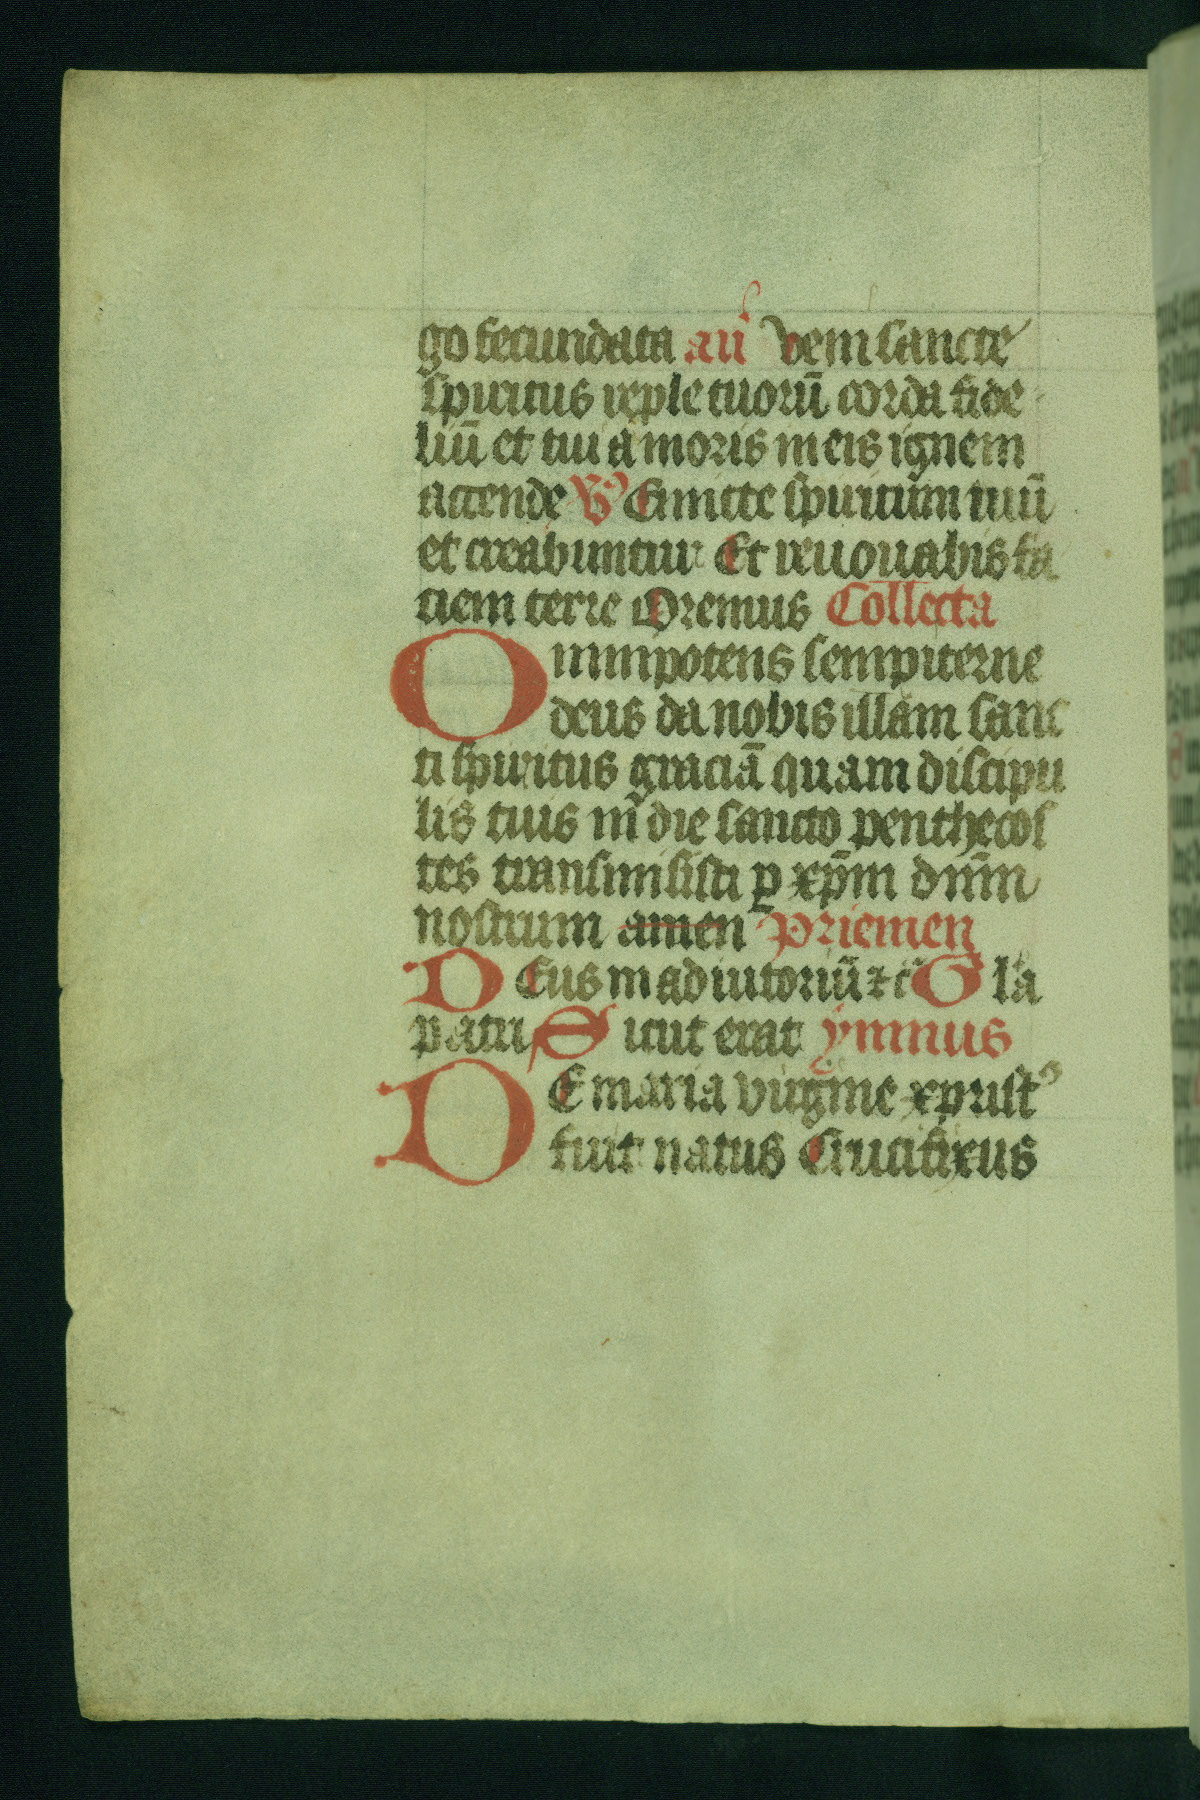 go fecundata an̄ Veni sancte
spiritus reple tuorū corda fide
liū et tui amoris in eis ignem
accende V Emitte spiritum tuū
et creabuntur Et renouabis fa
ciem terre Oremus Collecta
Omnipotens sempiterne
deus da nobis illam sanc
ti spiritus graciā quam discipu
lis tuis in die sancto penthecos
tes transmisisti ꝑ xp̄m dn̄m
nostrum amen Priemen
Deus in adiutoriū ⁊c̄ Gla
patri Sicut erat ymnus
De maria virgine xpristꝰ
fuit natus Crucifixus